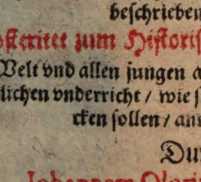 beschrieben
osteritet zum Historis
Welt vnd allen jungen a
lichen vnderricht / wie s
cken sollen / an
Dur